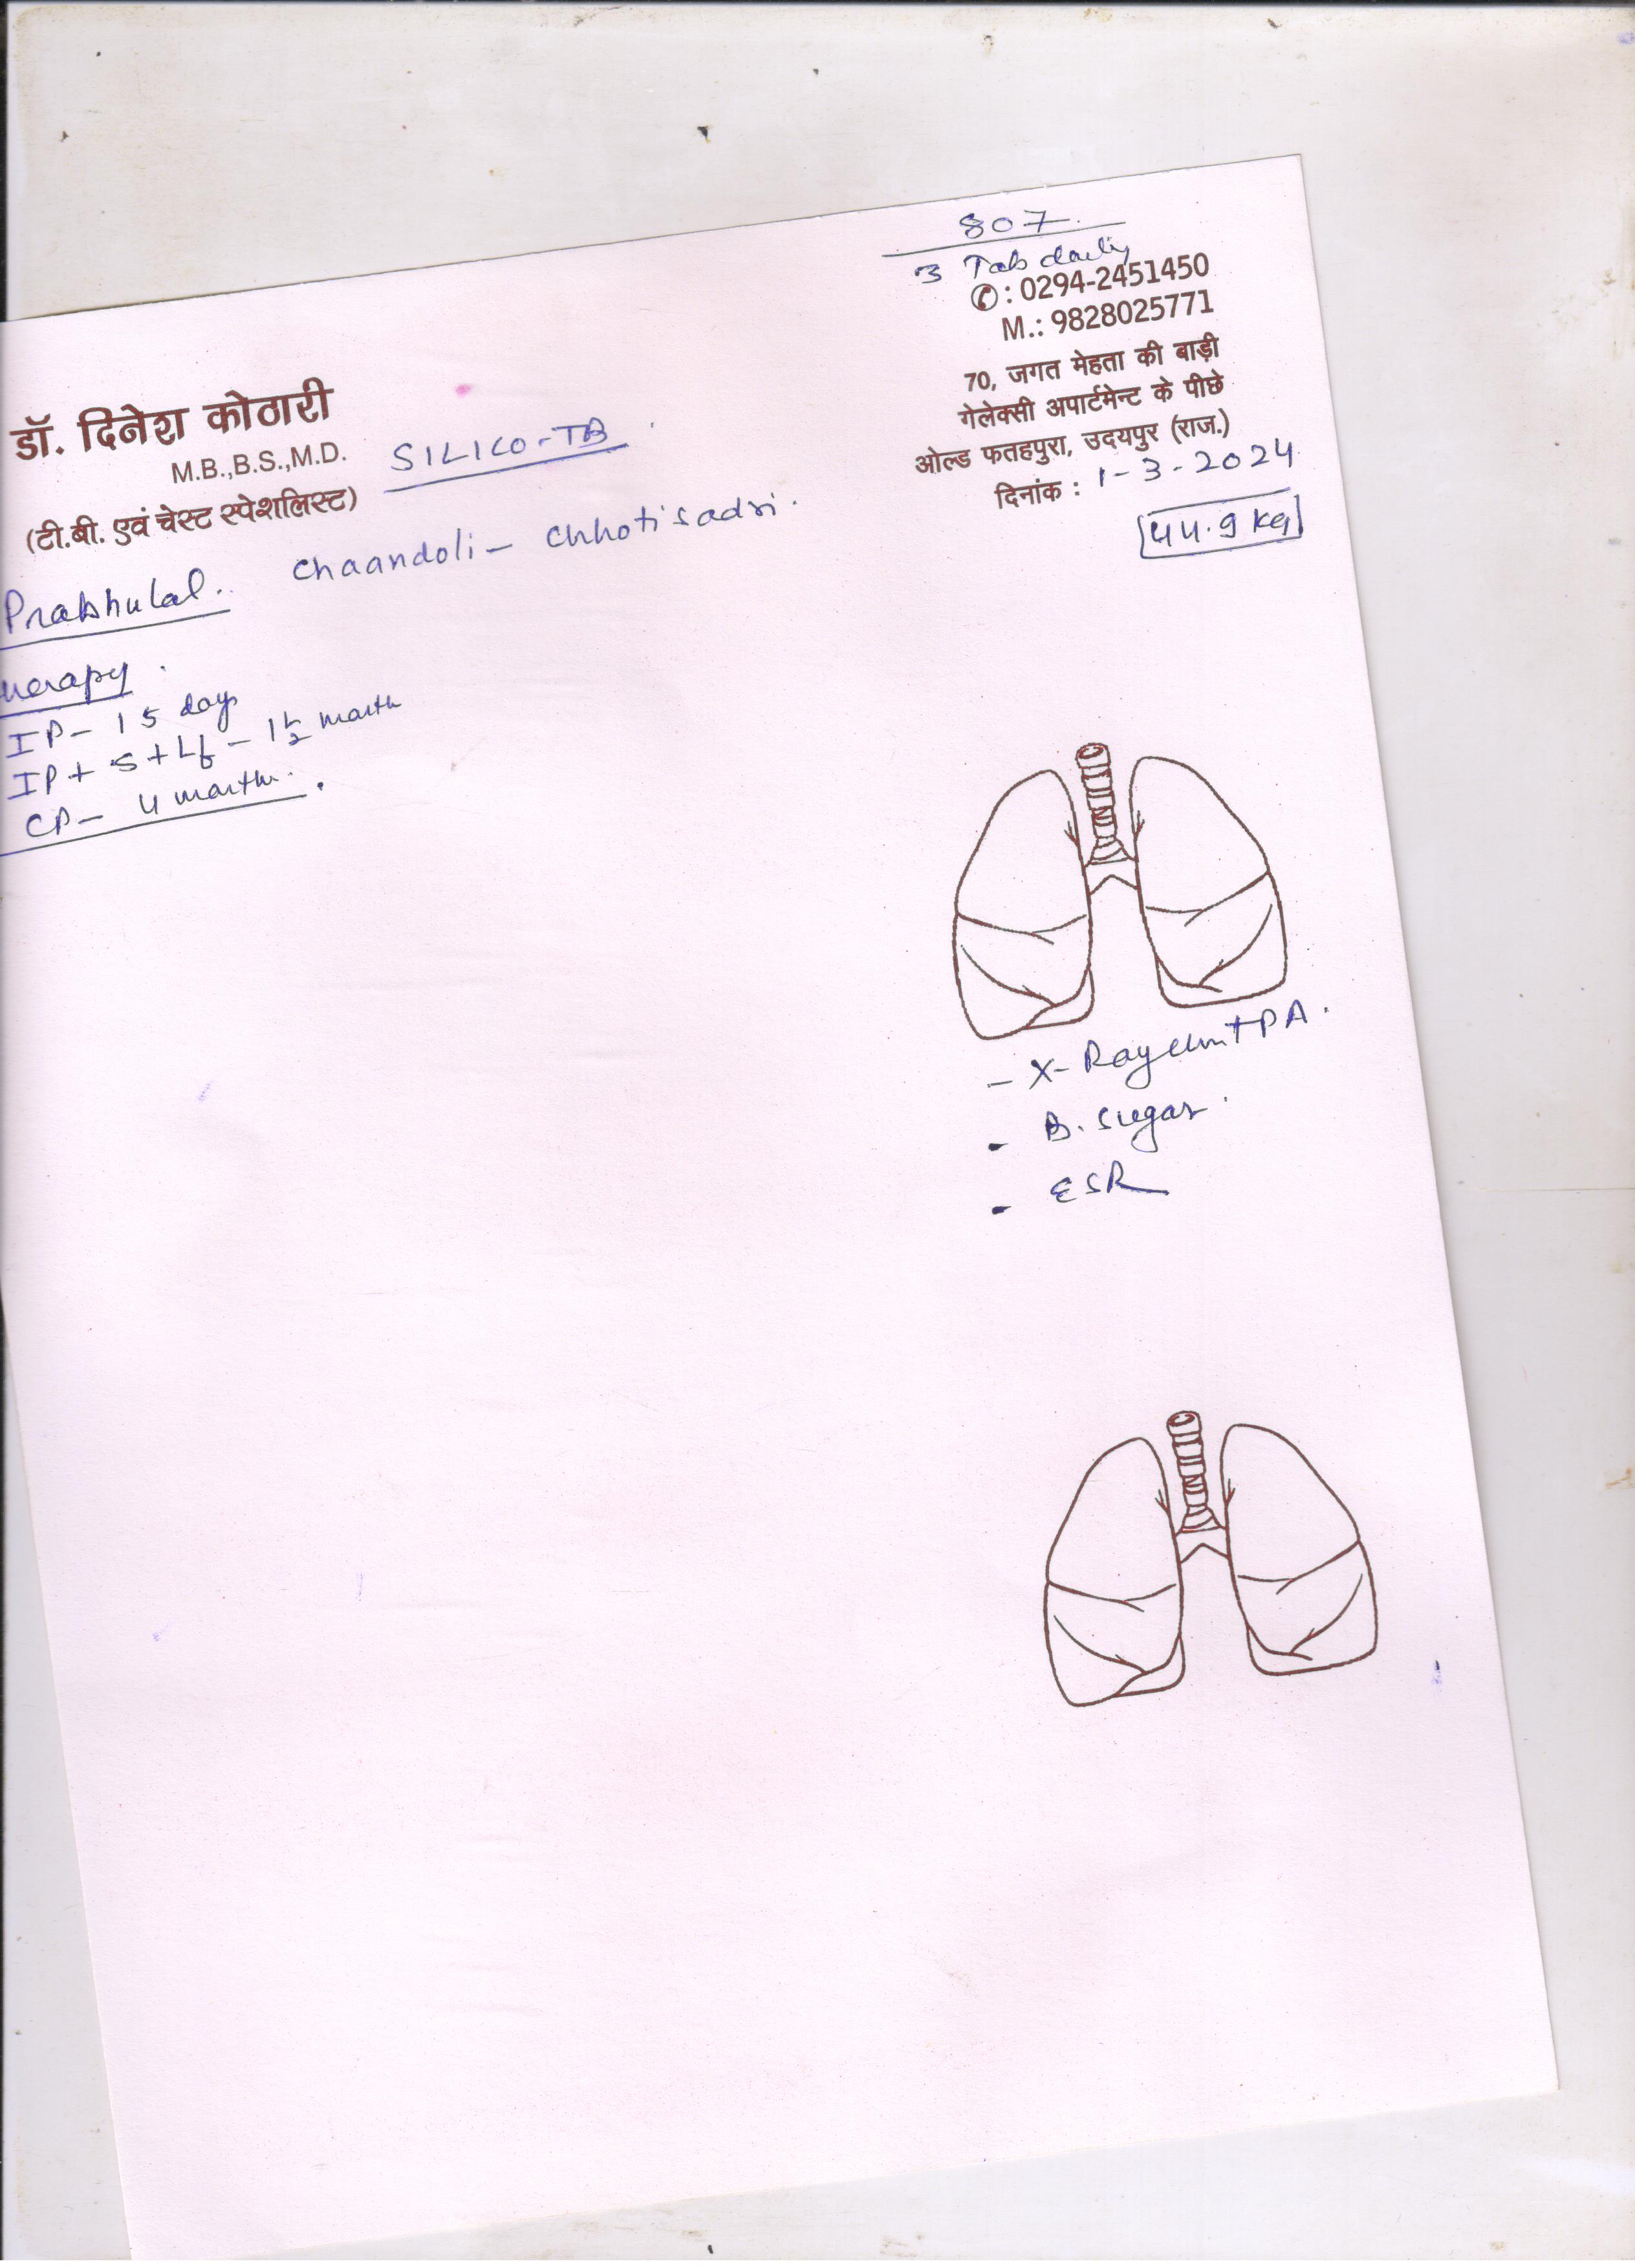 807
3 Tab daily
✆: 0294-2451450
M.: 9828025771
70, जगत मेहता की बाड़ी
गेलेक्सी अपार्टमेन्ट के पीछे
ओल्ड फतहपुरा, उदयपुर (राज.)
दिनांक : 1-3-2024
44.9 kg
डॉ. दिनेश कोठारी
M.B.,B.S.,M.D.
(टी.बी. एवं चेस्ट स्पेशलिस्ट)
SILICO-TB
Prabhulal. Chaandoli - Chhotisadri.
herapy
IP - 15 days
IP + S + Lf - 1½ month
CP - 4 month.
- X-Ray chest PA.
- B. sugar.
- ESR